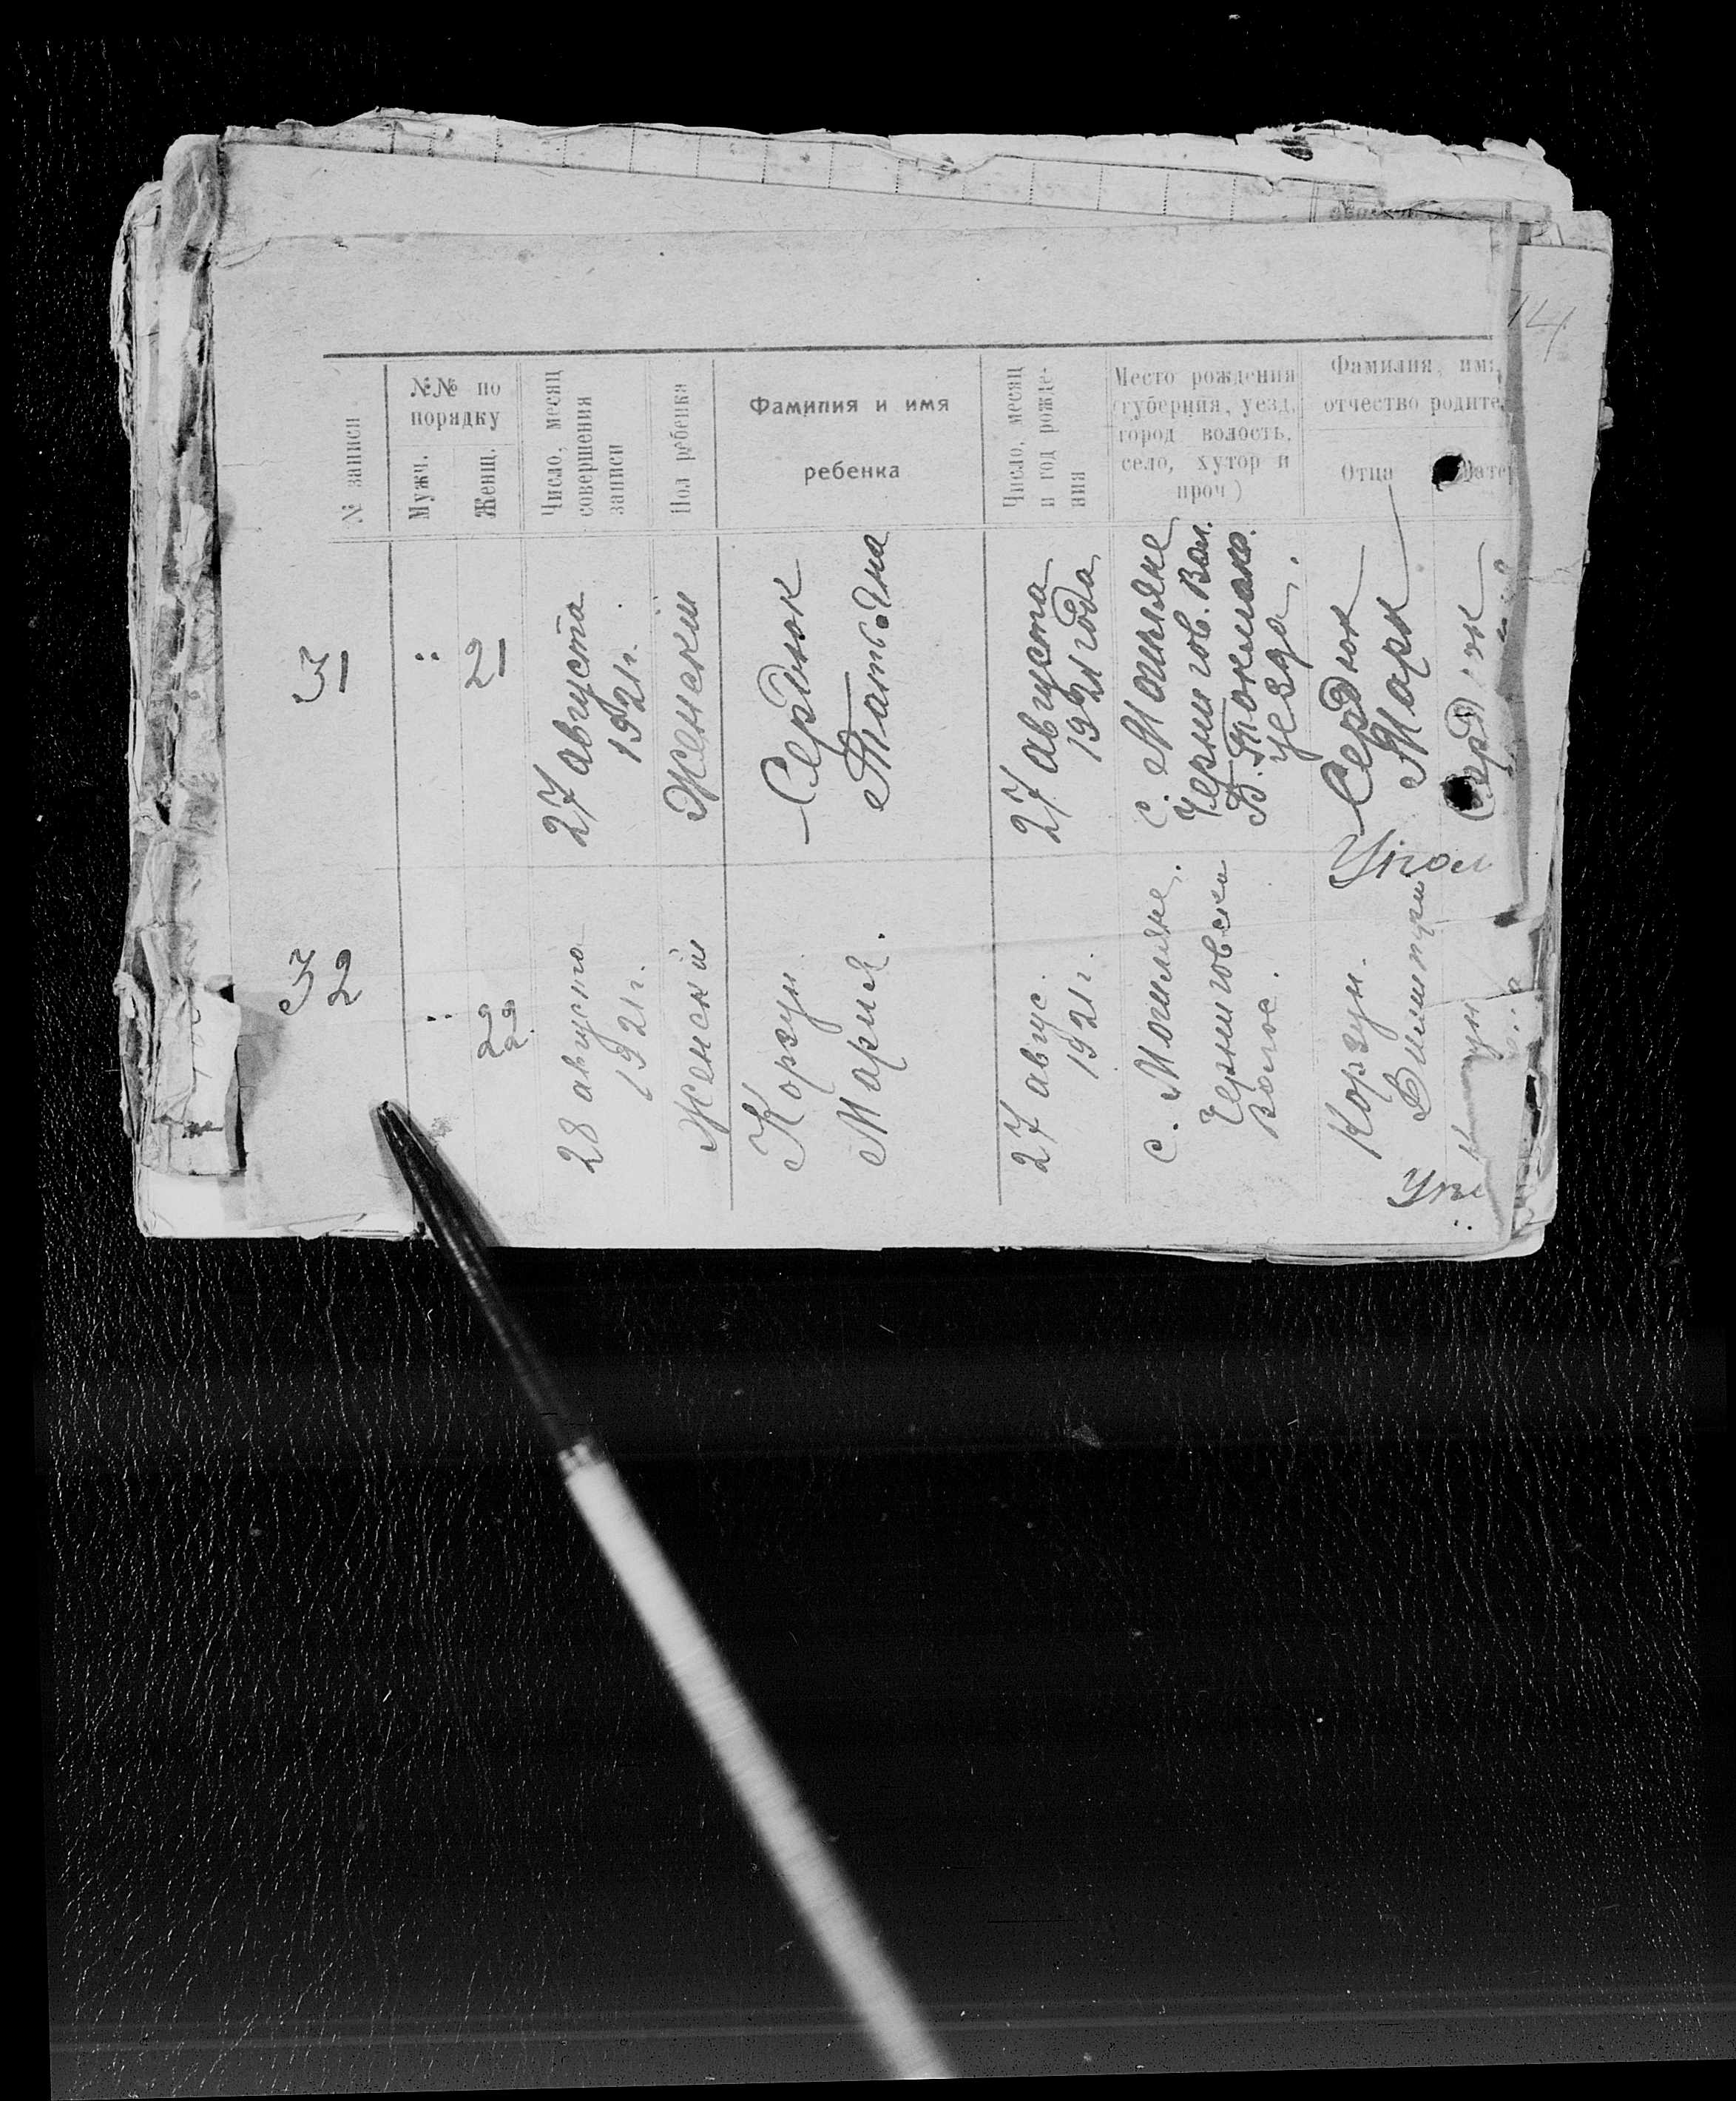 14
№ записи
№№ по
порядку
Мужч.
Женщ.
Число, месяц
совершения
записи
Пол ребенка
Фамилия и имя
ребенка
Число, месяц
и год рожде-
ния
Место рождения
(губерния, уезд,
город волость,
село, хутор и
проч)
Фамилия, имя
отчество родите
Отца
Мате
31
21
27 августа
1921 г.
Женский
Сердюк
Татьяна
27 августа
1921 года
с.
Чернигов. Вол.
Б. Токмако.
уезда.
Сердюк
Марк
32
22
28 августа
1921 г.
Женский
Корзун
Мария.
27 авгус.
1921 г.
с.
Черниговска
волос.
Корзун.